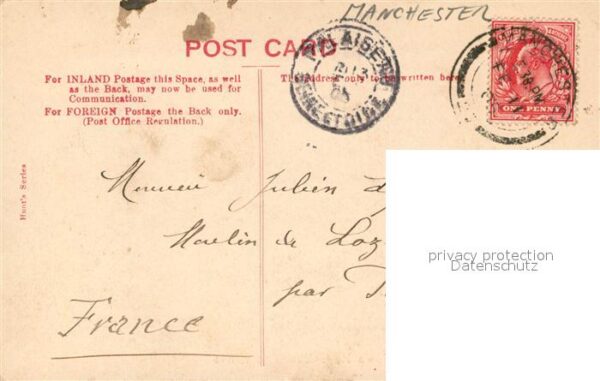 MANCHESTER
POST CARD
For INLAND Postage this Space, as well
as the Back, may now be used for
Communication.
For FOREIGN Postage the Back only.
(Post Office Regulation.)
The Address only to be written here.
ONE PENNY
MANCHESTER
Hunt's Series
Monsieur Julien
Moulin de
par
France
privacy protection
Datenschutz